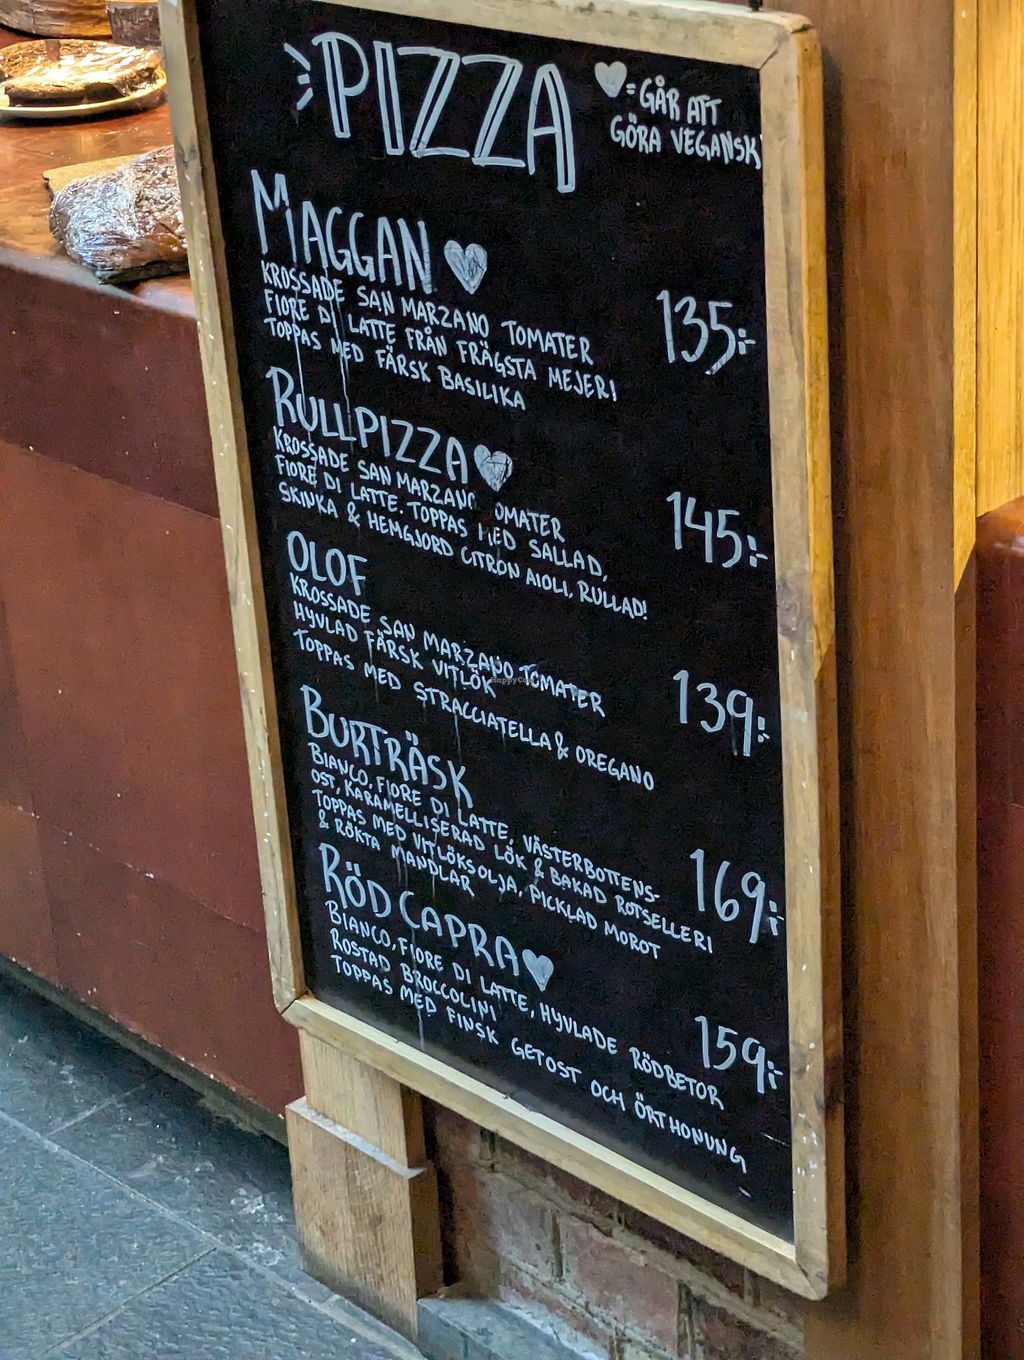 PIZZA
♥ = GÅR ATT
GÖRA VEGANSK
MAGGAN ♥
KROSSADE SAN MARZANO TOMATER
FIORE DI LATTE FRÅN FRÄGSTA MEJERI
TOPPAS MED FÄRSK BASILIKA
135:-
RULLPIZZA ♥
KROSSADE SAN MARZANO TOMATER
FIORE DI LATTE. TOPPAS MED SALLAD,
SKINKA & HEMGJORD CITRON AIOLI, RULLAD!
145:-
OLOF
KROSSADE SAN MARZANO TOMATER
HYVLAD FÄRSK VITLÖK
TOPPAS MED STRACCIATELLA & OREGANO
139:-
BURTRÄSK
BIANCO, FIORE DI LATTE, VÄSTERBOTTENS-
OST, KARAMELLISERAD LÖK & BAKAD ROTSELLERI
TOPPAS MED VITLÖKSOLJA, PICKLAD MOROT
& RÖKTA MANDLAR
169:-
RÖD CAPRA ♥
BIANCO, FIORE DI LATTE, HYVLADE RÖDBETOR
ROSTAD BROCCOLINI
TOPPAS MED FINSK GETOST OCH ÖRTHONUNG
159:-